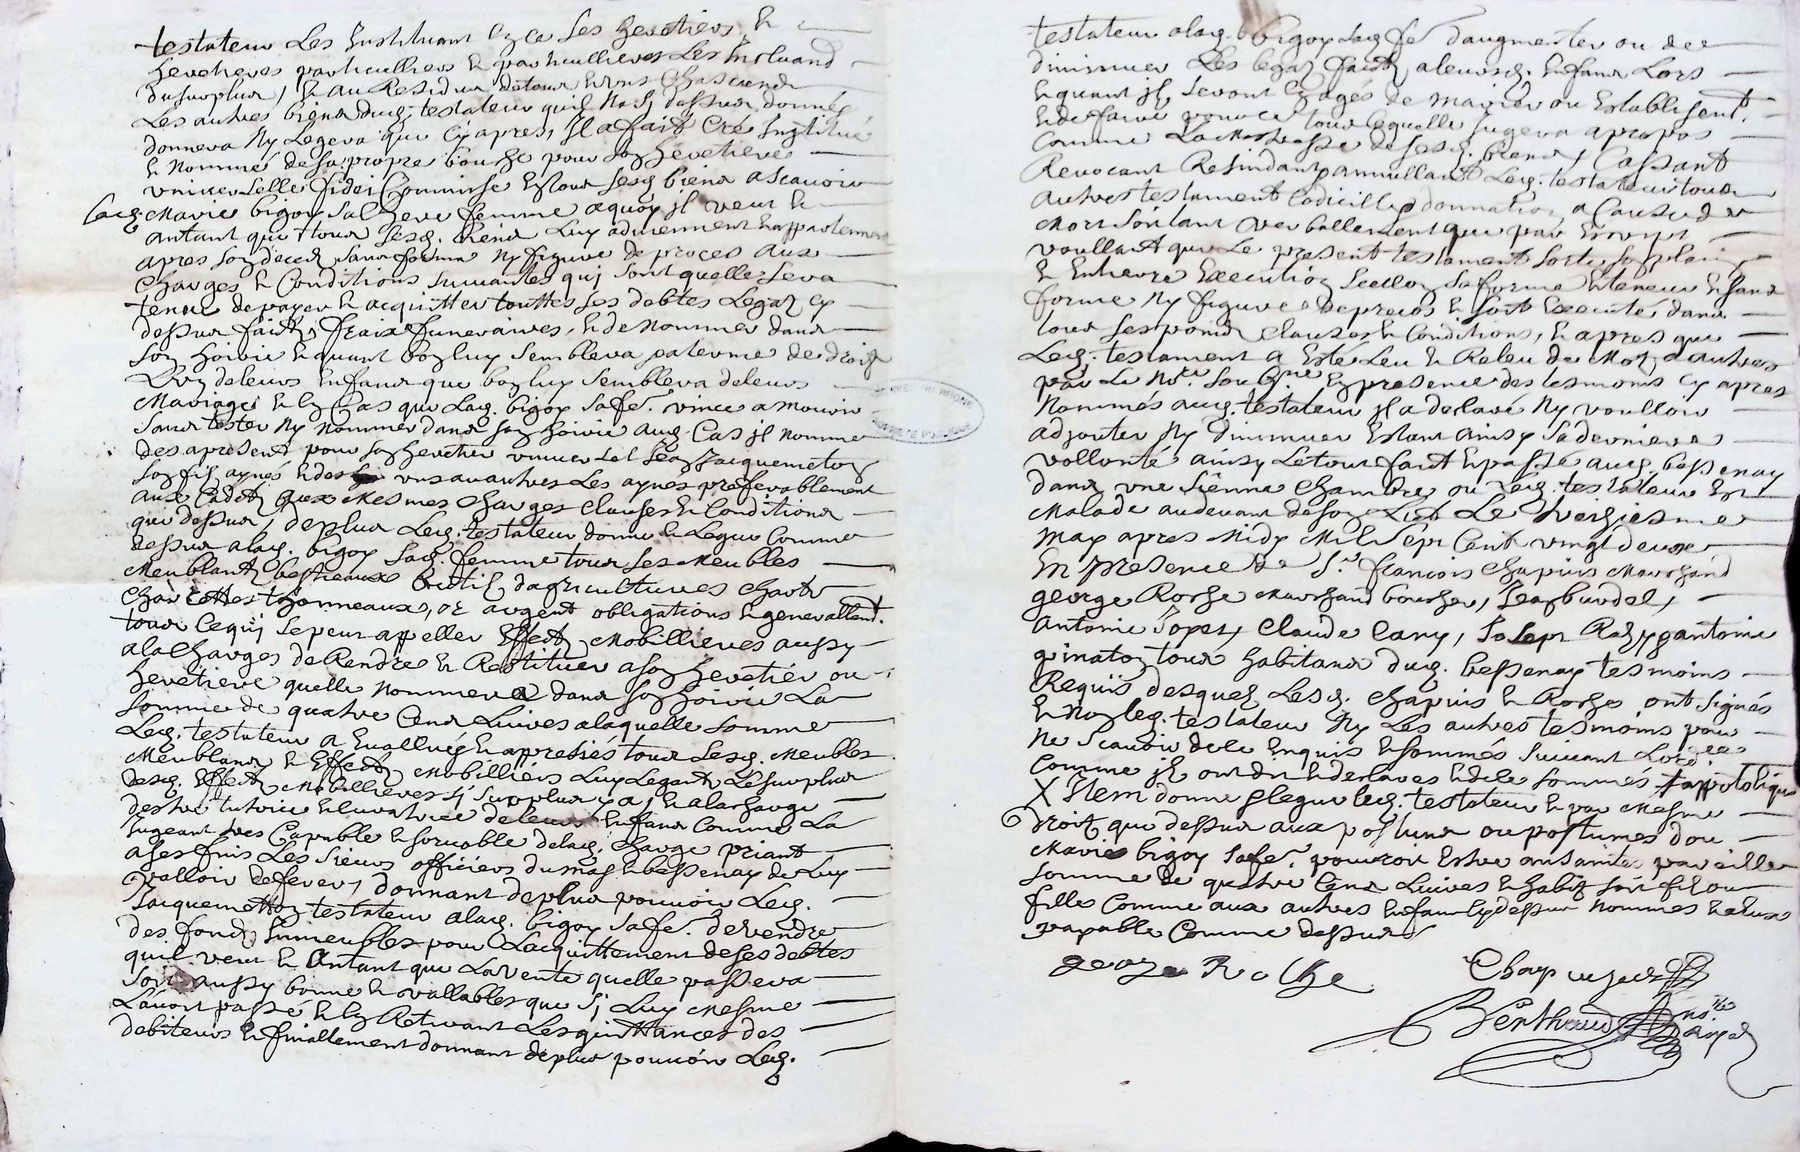 testateur Les Instituant En ce Ses heretiers Et
heretieres particulliers Et particullieres Les Excluand
du surplus, Et au Residus de tous Et uns Chascuns
Les autres biens dud. testateur quil Na cy dessus donnés
donnera Ny Legera que Cy apres, Il a fait Cré Institué
Et Nommé de sa propre bouche pour son heretiere
universelle fidei Commisse En tous sesd. biens ascavoir
lad. Marie bigoy Sa Chere femme a quoy il veut Et
antant que tous sesd. biens Luy adviennent Et appartiennent
apres son deced sans forme Ny figure de proces aux
Charges Et Conditions suivantes qui sont quelle sera
tenue de payer Et acquitter touttes ses debtes Legaz cy
dessus faits, fraix funeraires, Et de Nommer dans
son hoirie Et quant bon luy semblera paternie de droit
L'un de leurs Enfans que bon luy semblera de leurs
Mariages Et En Cas que Lad. bigoy Sa fe. vince a mourir
sans tester Ny Nommer dans son hoirie aud. Cas il Nomme
des apresent pour son heretier universel Jean Jacquemeton
son fils aynés Et des uns au autres Les aynes preferablement
aux Cadets aux Mesmes Charges Clauses Et Conditions
que dessus, de plus Led. testateur donne Et Legue Comme
dessus a lad. bigoy Sad. femme tous ses Meubles
Meublants bestieaux Outtils dagricultures Chars
Charettes thonneaux, or argent obligations Et generallemt.
tous Ce qui se peut appeller Effects Mobillieres aussy
a la Charges de Rendre Et Restituer a son heretier ou
heretiere quelle Nommera dans son hoirie La
somme de quatre Cens Livres a laquelle somme
Led. testateur a Evallués Et appresiés tous Sesd. Meubles
Meublans Et Effects Mobilliers Luy Legants Le surplus
desd. Effects Mobillieres si surplus y a, Et a la charge
destre tutrice Et curatrice de leurs Enfans Comme La
Jugeant tres Capable Et sorvable de lad. Charge priant
a ses fins Les Sieurs officiers du mas Et bessenay de Luy
valloir deferer, donnant de plus pouvoir Led.
Jacquemetton testateur a lad. bigoy Sa fe. de vendre
des fonds Inmeubles pour Lacquittement de ses debtes
quil veut Et Antant que La vente quelle passera
soit aussy bonne Et vallables que si Luy Mesme
Lavoit passé Et En Retirant Les quittances des
debiteurs Et finallement donnant de plus pouvoir Led.
testateur a lad. bigoy Sad. fe. daugmenter ou de
diminuer Les legaz faits a leursd. Enfans Lors
Et quant Ils seront Chagés de Marier ou Establisemt.
Et de faire pour ce tout ce quelle jugera apropos
Comme La Maistresse de sesd. biens, Cassant
Revocant Resindant Et annullant Led. testateur tous
Autres testament Codicille donnation a Cause de
Mort soitant verballement que par Escript
voullant que Le present testament sorte son plain
Et Entiere Execution seellon sa forme Et teneur Et sans
forme Ny figure de preces Et soit Executé dans
tous ses points Clauses Et Conditions, Et apres que
Led. testament a Esté Leu Et Releu de Mot a autres
par Le Nre. Soubsne. En presence des tesmoins Cy apres
Nommés aud. testateur Il a declaré Ny voulloir
adjouter Ny diminuer Estant ainsy sa derniere
vollonté ainsy Le tout fait Et passé aud. bessenay
dans une sienne Chambre ou Led. testateur Est
Malade au devant de son Lict Le treiziesme
May apres Midy Mil Sept Cent vingt deux
En presence de Sr. francois Chapuis Marchand
george Roche Marchand boucher, Jean burdel,
Antoine poper, Claude Cany, Josept Et antoine
pinaton tous habitans dud. bessenay tesmoins
Requis desquels Lesd. Chapuis Et Roche ont signés
Et Non led. testateur Ny Les autres tesmoins pour
Ne scavoir de ce Enquis Et sommés suivant Lord.ces
Comme Ils ont dit Et declarés Et de ce sommés +appotolique
X Item donne Et legue Led. testateur Et par Mesme
droit que dessus aux postume ou postumes dou
Marie bigoy Sa fe. pourroit Estre ansainte pareille
somme de quatre Cens Livres Et habits soit fils ou
filles Comme aux autres Enfans Cy dessus Nommes Et aussy
payable Comme dessus
george Rolhe
Chapuy
Berthoud
no.re
Royal